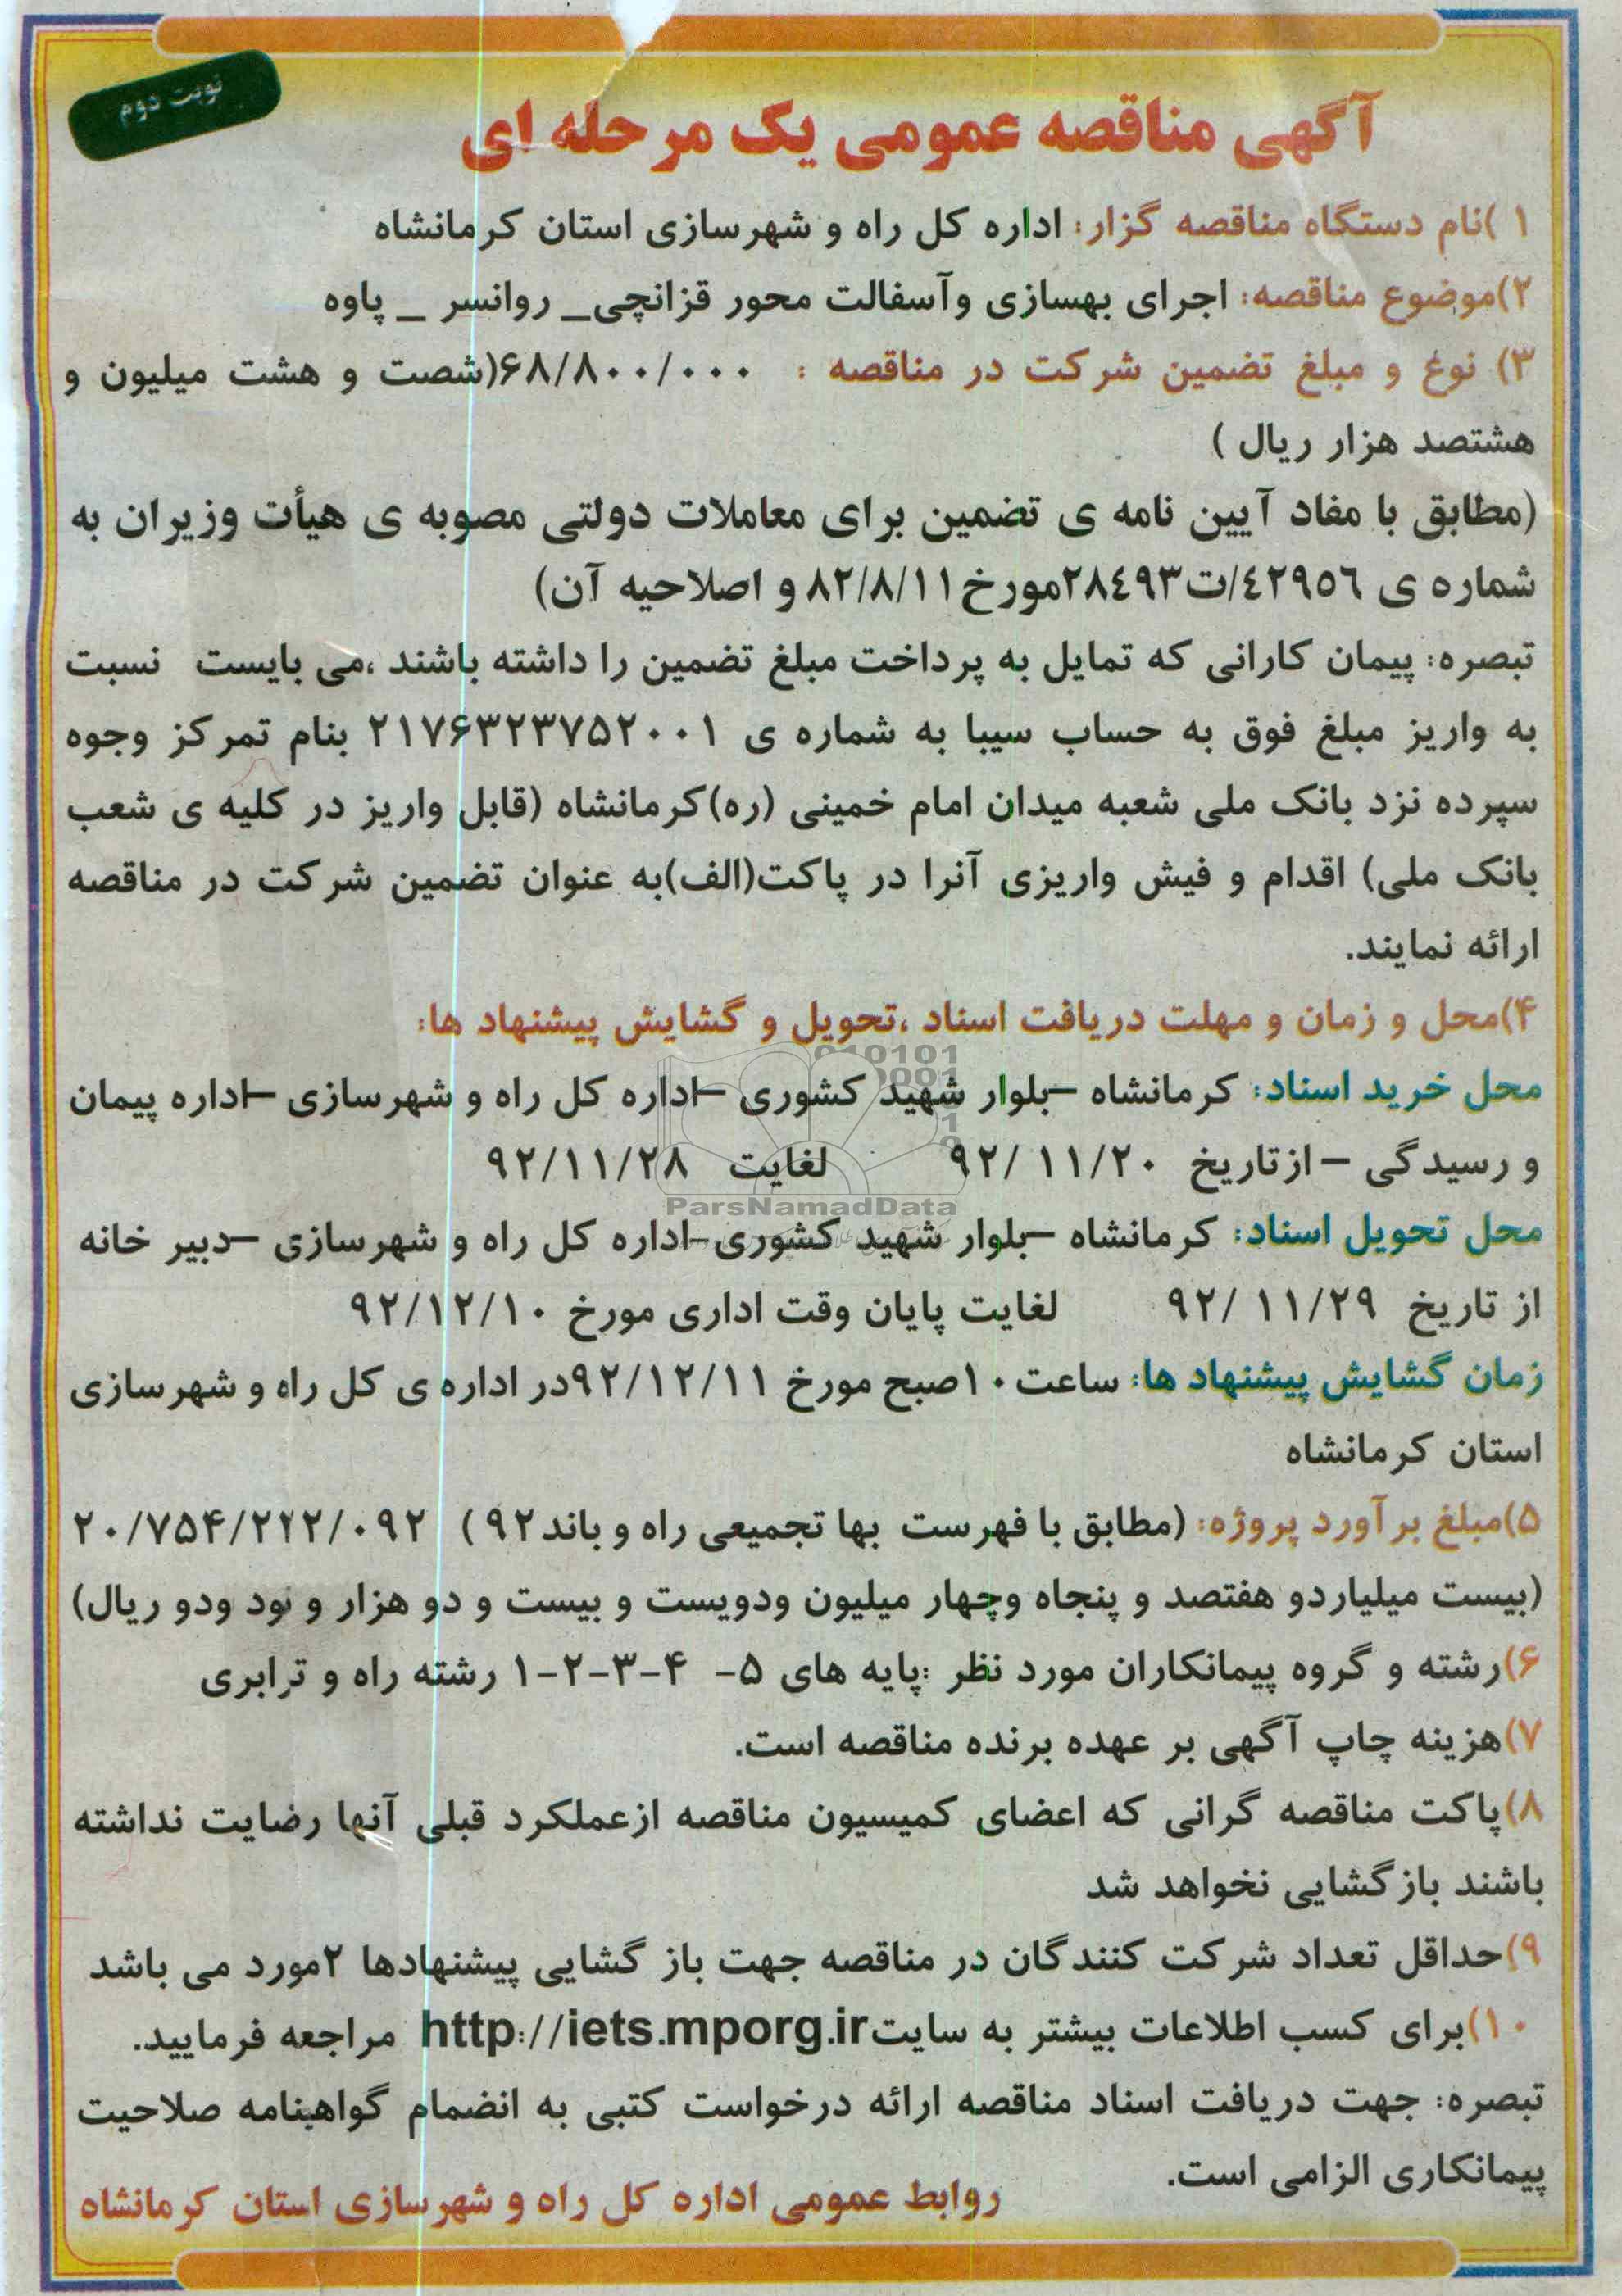 نوبت دوم
آگهی مناقصه عمومی یک مرحله ای
۱ )نام دستگاه مناقصه گزار: اداره کل راه و شهرسازی استان کرمانشاه
۲)موضوع مناقصه: اجرای بهسازی وآسفالت محور قزانچی_ روانسر _ پاوه
۳) نوع و مبلغ تضمین شرکت در مناقصه : ۶۸/۸۰۰/۰۰۰(شصت و هشت میلیون و
هشتصد هزار ریال )
(مطابق با مفاد آیین نامه ی تضمین برای معاملات دولتی مصوبه ی هیأت وزیران به
شماره ی ٤٢٩٥٦/ت٢٨٤٩٣مورخ۸۲/۸/۱۱ و اصلاحیه آن)
تبصره: پیمان کارانی که تمایل به پرداخت مبلغ تضمین را داشته باشند ،می بایست نسبت
به واریز مبلغ فوق به حساب سیبا به شماره ی ۲۱۷۶۳۲۳۷۵۲۰۰۱ بنام تمرکز وجوه
سپرده نزد بانک ملی شعبه میدان امام خمینی (ره)کرمانشاه (قابل واریز در کلیه ی شعب
بانک ملی) اقدام و فیش واریزی آنرا در پاکت(الف)به عنوان تضمین شرکت در مناقصه
ارائه نمایند.
۴)محل و زمان و مهلت دریافت اسناد ،تحویل و گشایش پیشنهاد ها:
محل خرید اسناد: کرمانشاه –بلوار شهید کشوری –اداره کل راه و شهرسازی –اداره پیمان
و رسیدگی – ازتاریخ ۹۲/ ۱۱/۲۰ لغایت ۹۲/۱۱/۲۸
ParsNamadData
محل تحویل اسناد: کرمانشاه –بلوار شهید کشوری-اداره کل راه و شهرسازی –دبیر خانه
از تاریخ ۹۲/ ۱۱/۲۹ لغایت پایان وقت اداری مورخ ۹۲/۱۲/۱۰
زمان گشایش پیشنهاد ها: ساعت ۱۰صبح مورخ ۹۲/۱۲/۱۱در اداره ی کل راه و شهرسازی
استان کرمانشاه
۵)مبلغ برآورد پروژه: (مطابق با فهرست بها تجمیعی راه و باند ۹۲ ) ۲۰/۷۵۴/۲۲۲/۰۹۲
(بیست میلیاردو هفتصد و پنجاه وچهار میلیون ودویست و بیست و دو هزار و نود ودو ریال)
۶)رشته و گروه پیمانکاران مورد نظر :پایه های ۵- ۴-۳-۲-۱ رشته راه و ترابری
۷)هزینه چاپ آگهی بر عهده برنده مناقصه است.
۸)پاکت مناقصه گرانی که اعضای کمیسیون مناقصه ازعملکرد قبلی آنها رضایت نداشته
باشند بازگشایی نخواهد شد
۹)حداقل تعداد شرکت کنندگان در مناقصه جهت باز گشایی پیشنهادها ۲مورد می باشد
۱۰)برای کسب اطلاعات بیشتر به سایت http://iets.mporg.ir مراجعه فرمایید.
تبصره: جهت دریافت اسناد مناقصه ارائه درخواست کتبی به انضمام گواهینامه صلاحیت
پیمانکاری الزامی است.
روابط عمومی اداره کل راه و شهرسازی استان کرمانشاه